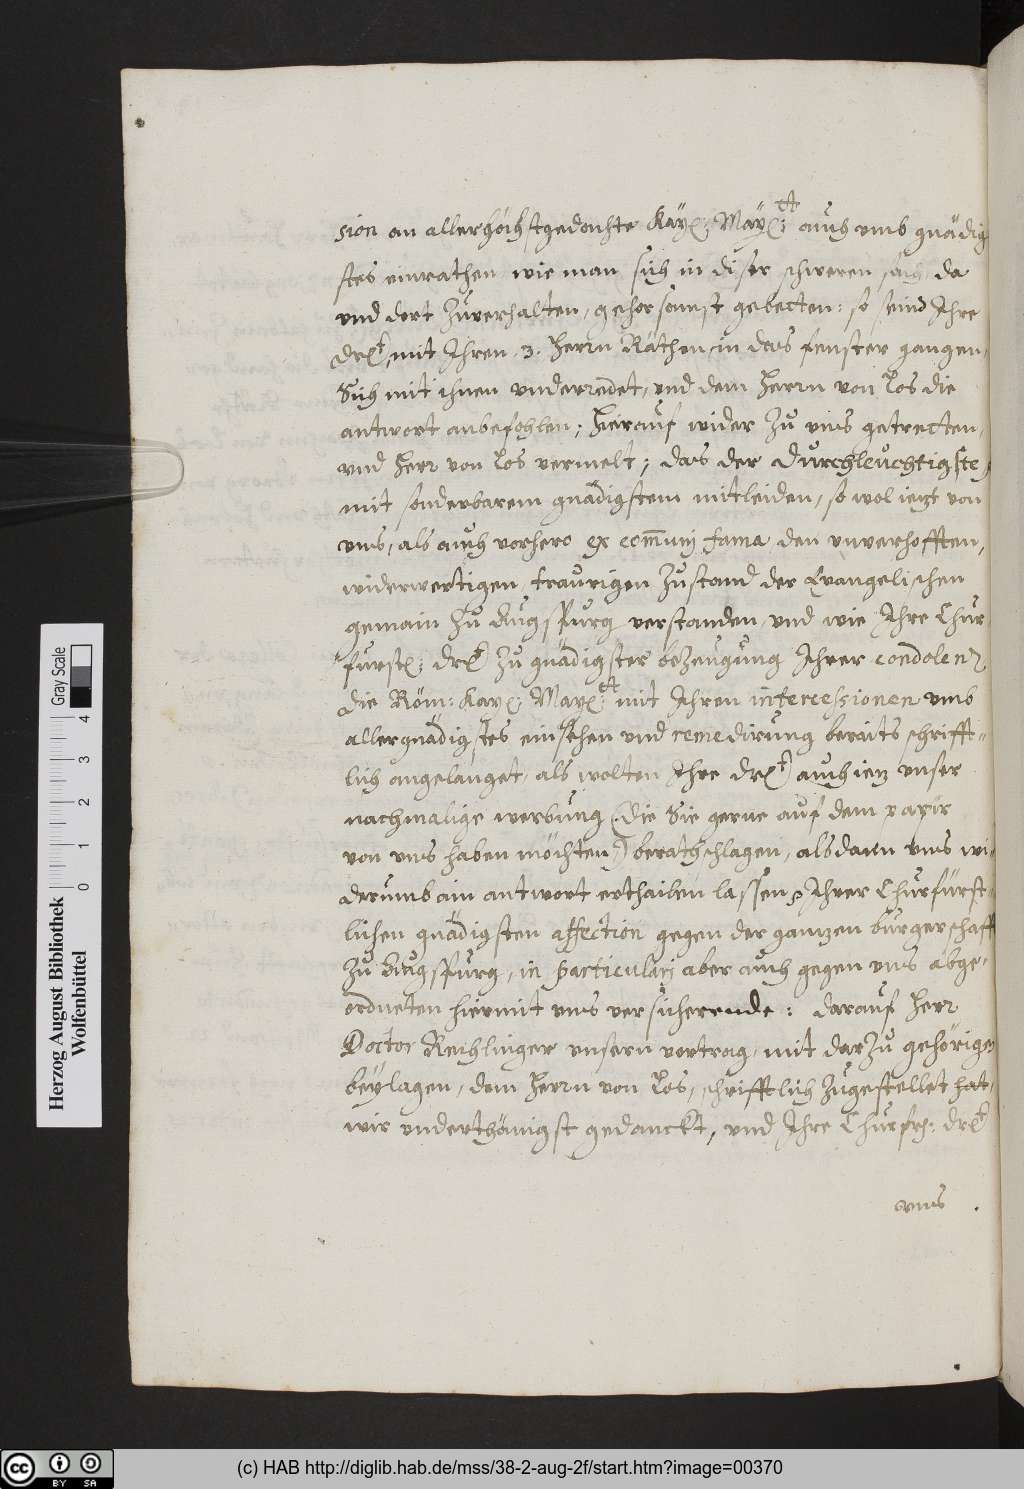 sion an allerhöchstgedachte Kaÿ: Maÿ:tt auch umb gnädig
stes einrathen wie man sich in diser schweren sach, da
vnd dort Zuverhalten, gehorsamst gebetten: so seind Ihre
Drlt, mit Ihren 3. Herrn Räthen, in das fenster gangen,
Sich mit ihnen vnderredet, vnd dem Herrn von Los die
antwort anbefohlen; Hierauf wider Zu vns getretten,
vnd Herr von Los vermelt; das der Durchleuchtigste,
mit sonderbarem gnädigstem mitleiden, so wol iezt von
vns, als auch vorhero ex com̄uni fama den vnverhofften,
widerwertigen, traurigen Zustand der Evangelischen
gemain Zu Augspurg verstanden, vnd wie Ihre Chur
fürstl: Drlt Zu gnädigster beZeugung Ihrer condolenz
die Röm: Kay: May:tt mit Ihren intercessionen umb
allergnädigstes einsehen vnd remedirung beraits schrifft-
lich angelanget, als wolten Ihre Drlt auch iez vnser
nachmalige werbung (die Sie gerne auf dem papir
von vns haben möchten,) berathschlagen, alsdann vns wi-
derumb ain antwort erthailen lassen, Ihrer Churfürst-
lichen gnädigsten affection gegen der ganzen burgerschafft
Zu Augspurg, in particulari aber auch gegen vns abge-
ordneten hiermit vns versicherende: darauf Herr
Doctor Reihlinger vnsern vortrag, mit darZu gehörigen
beÿlagen, dem Herrn von Los, schrifftlich Zugestellet hat,
wir vnderthänigst gedanckt, vnd Ihre Churfrl: Drlt
vns
Herzog August Bibliothek
Wolfenbüttel
Gray Scale
0 1 2 3 4
cc BY SA
(c) HAB http://diglib.hab.de/mss/38-2-aug-2f/start.htm?image=00370